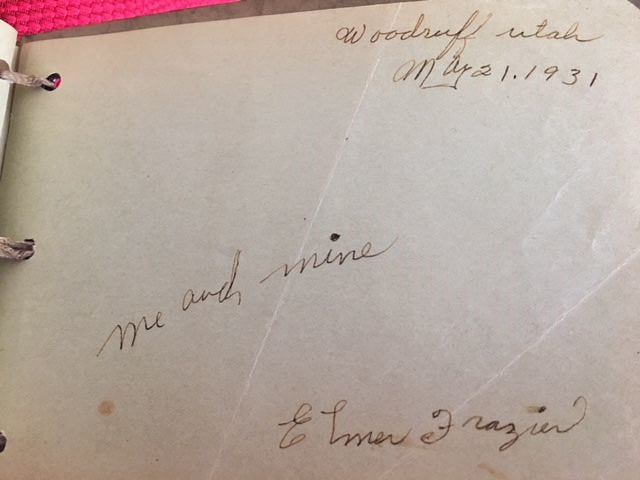 Woodruff utah
May 21. 1931
me and mine
Elmer Frazier